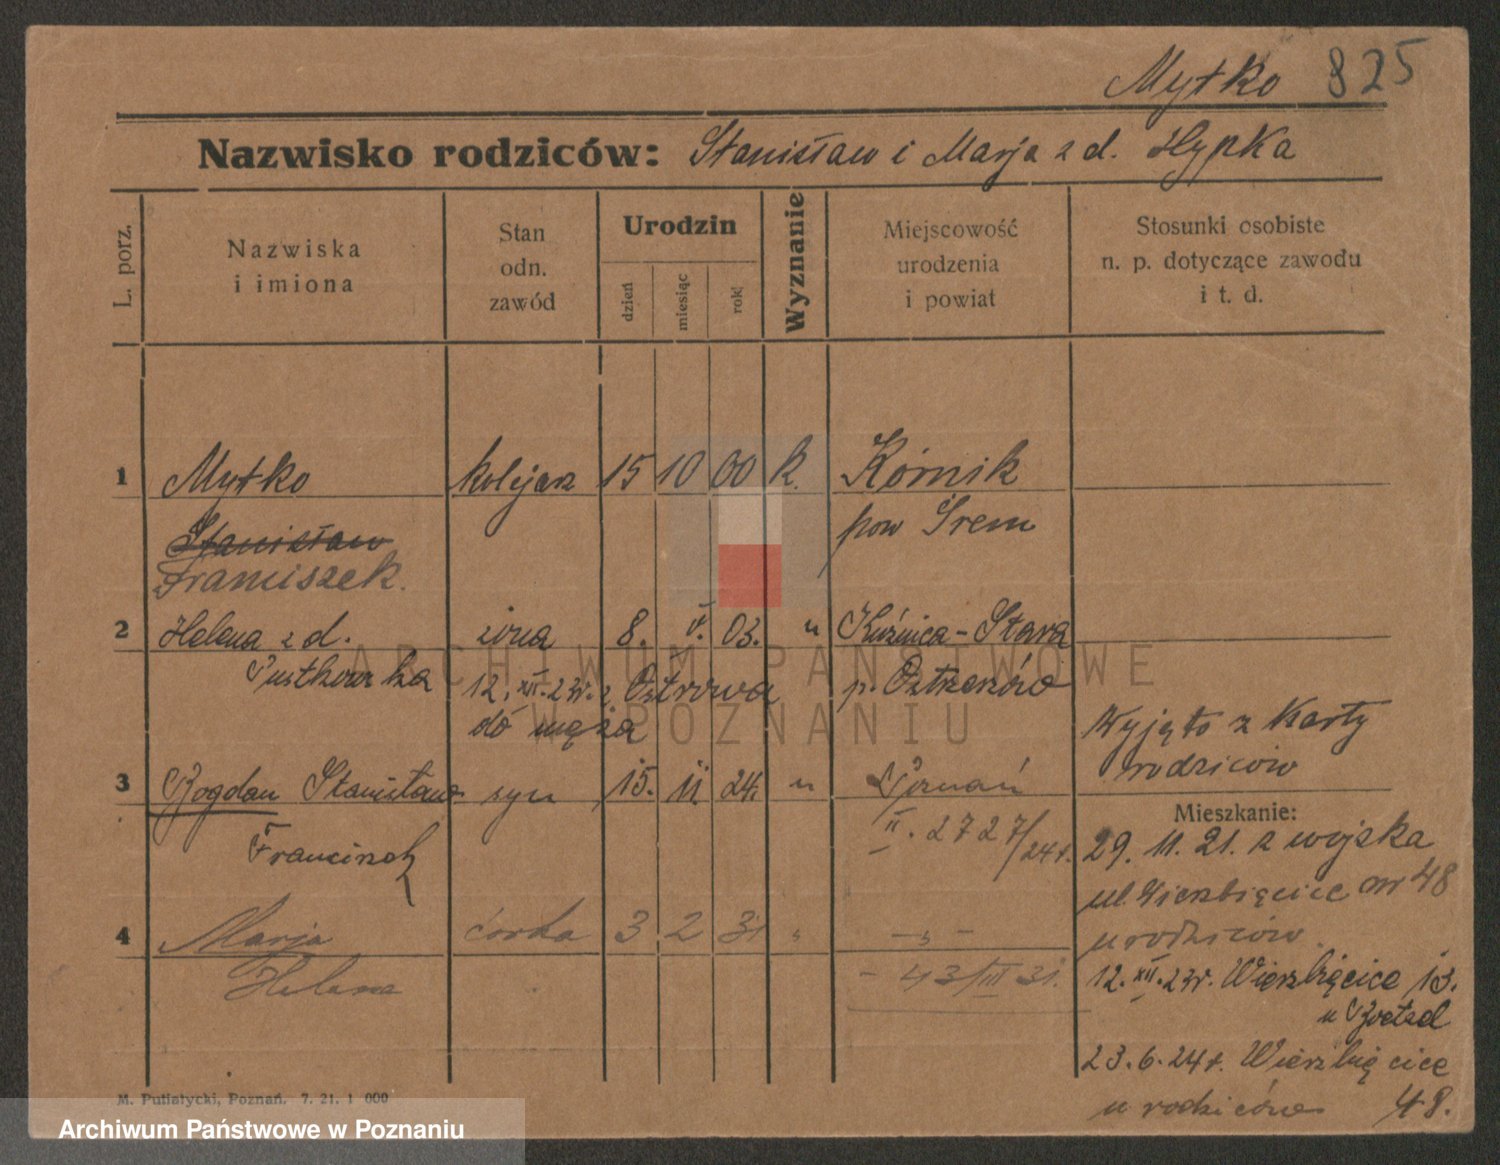 Mytko 825
Nazwisko rodziców: Stanisław i Marja z d. Hypka
L. porz.
Nazwiska
i imiona
Stan
odn.
zawód
Urodzin
dzień
miesiąc
rok
Wyznanie
Miejscowość
urodzenia
i powiat
Stosunki osobiste
n. p. dotyczące zawodu
i t. d.
1 Mytko kolejarz 15 10 00 k. Kórnik
Stanisław pow Śrem
Franciszek.
2 Helena z d. żona 8. V. 03. " Kuźnica-Stara
Pustkowska 12. XII. 23r. z Ostrowa p. Ostrzeszów
do męża
Wyjęto z karty
rodziców
3 Bogdan Stanisław syn 15. II 24. " Poznań
Franciszek II. 2727/24r.
Mieszkanie:
29. 11. 21. z wojska
ul. Wierzbięcice nr 48
u rodziców.
4 Marja córka 3 2 31 " - " -
Helena - 43/III 31.
12. XII. 23r. Wierzbięcice 13.
u
23. 6. 24r. Wierzbięcice
u rodziców 48.
M. Putiatycki, Poznań. 7. 21. 1 000
ARCHIWUM PAŃSTWOWE
W POZNANIU
Archiwum Państwowe w Poznaniu